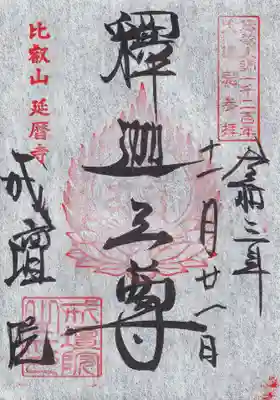 一千二百年
令和三年
十一月廿一日
釋迦三尊
比叡山 延暦寺
戒壇院
戒壇院